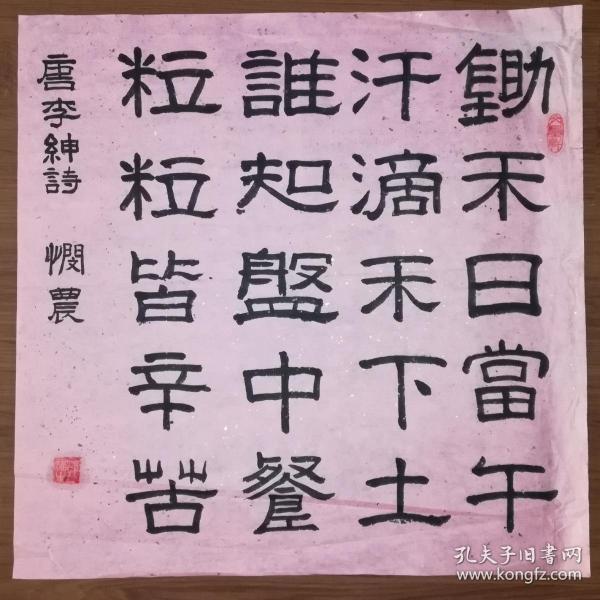 鋤禾日當午
汗滴禾下土
誰知盤中餐
粒粒皆辛苦
唐李紳詩 憫農
孔夫子旧书网
www.kongfz.com